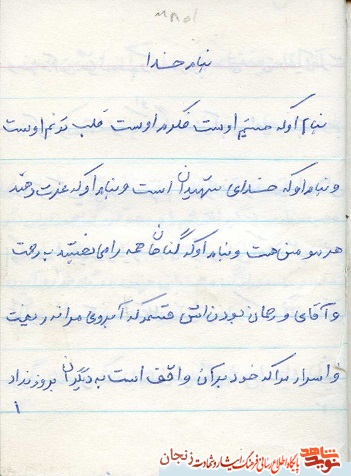 بنام خدا
بنام او که هستیم اوست فکرم اوست قلب تو نم اوست
و بنام او که خدای شهیدان است و بنام او که عزت دهنده
هر مو من هست و بنام او که گناهان همه را می بخشد به رحمت
و آقای و رحمان بودن اش قسم که آبروی مرا نه ریخت
و اسرار مرا که خود بر آن واقف است به دیگران بروز نداد
۱
نوید شاهد
پایگاه اطلاع رسانی فرهنگ ایثار و شهادت زنجان